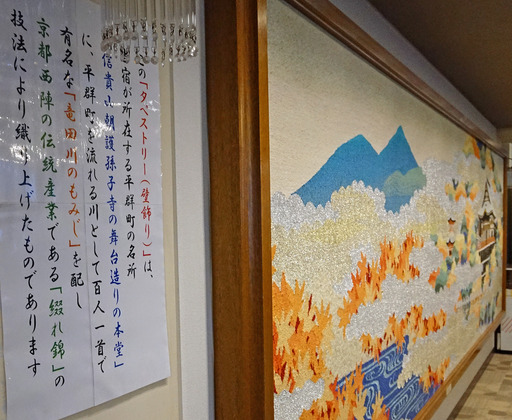 の「タペストリー(壁飾り)」は、
宿が所在する平群町の名所
信貴山朝護孫子寺の舞台造りの本堂」
に、平群町を流れる川として百人一首で
有名な「竜田川のもみじ」を配し
京都西陣の伝統産業である「綴れ錦」の
技法により織り上げたものであります